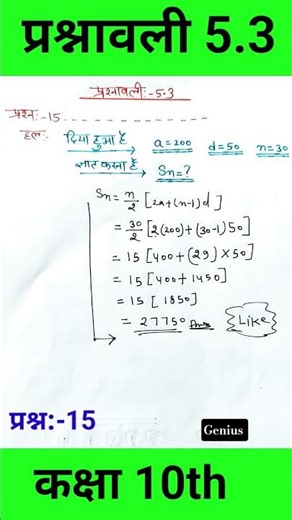 प्रश्नावली 5.3
प्रश्नावली:-5.3
प्रश्न:-15
हल:- दिया हुआ है a=200 d=50 n=30
ज्ञात करना है Sn=?
Sn = n/2 [2a+(n-1)d]
= 30/2 [2(200)+(30-1)50]
= 15 [400+(29)×50]
= 15 [400+1450]
= 15 [1850]
= 27750 Ans
Like
प्रश्न:-15
Genius
कक्षा 10th